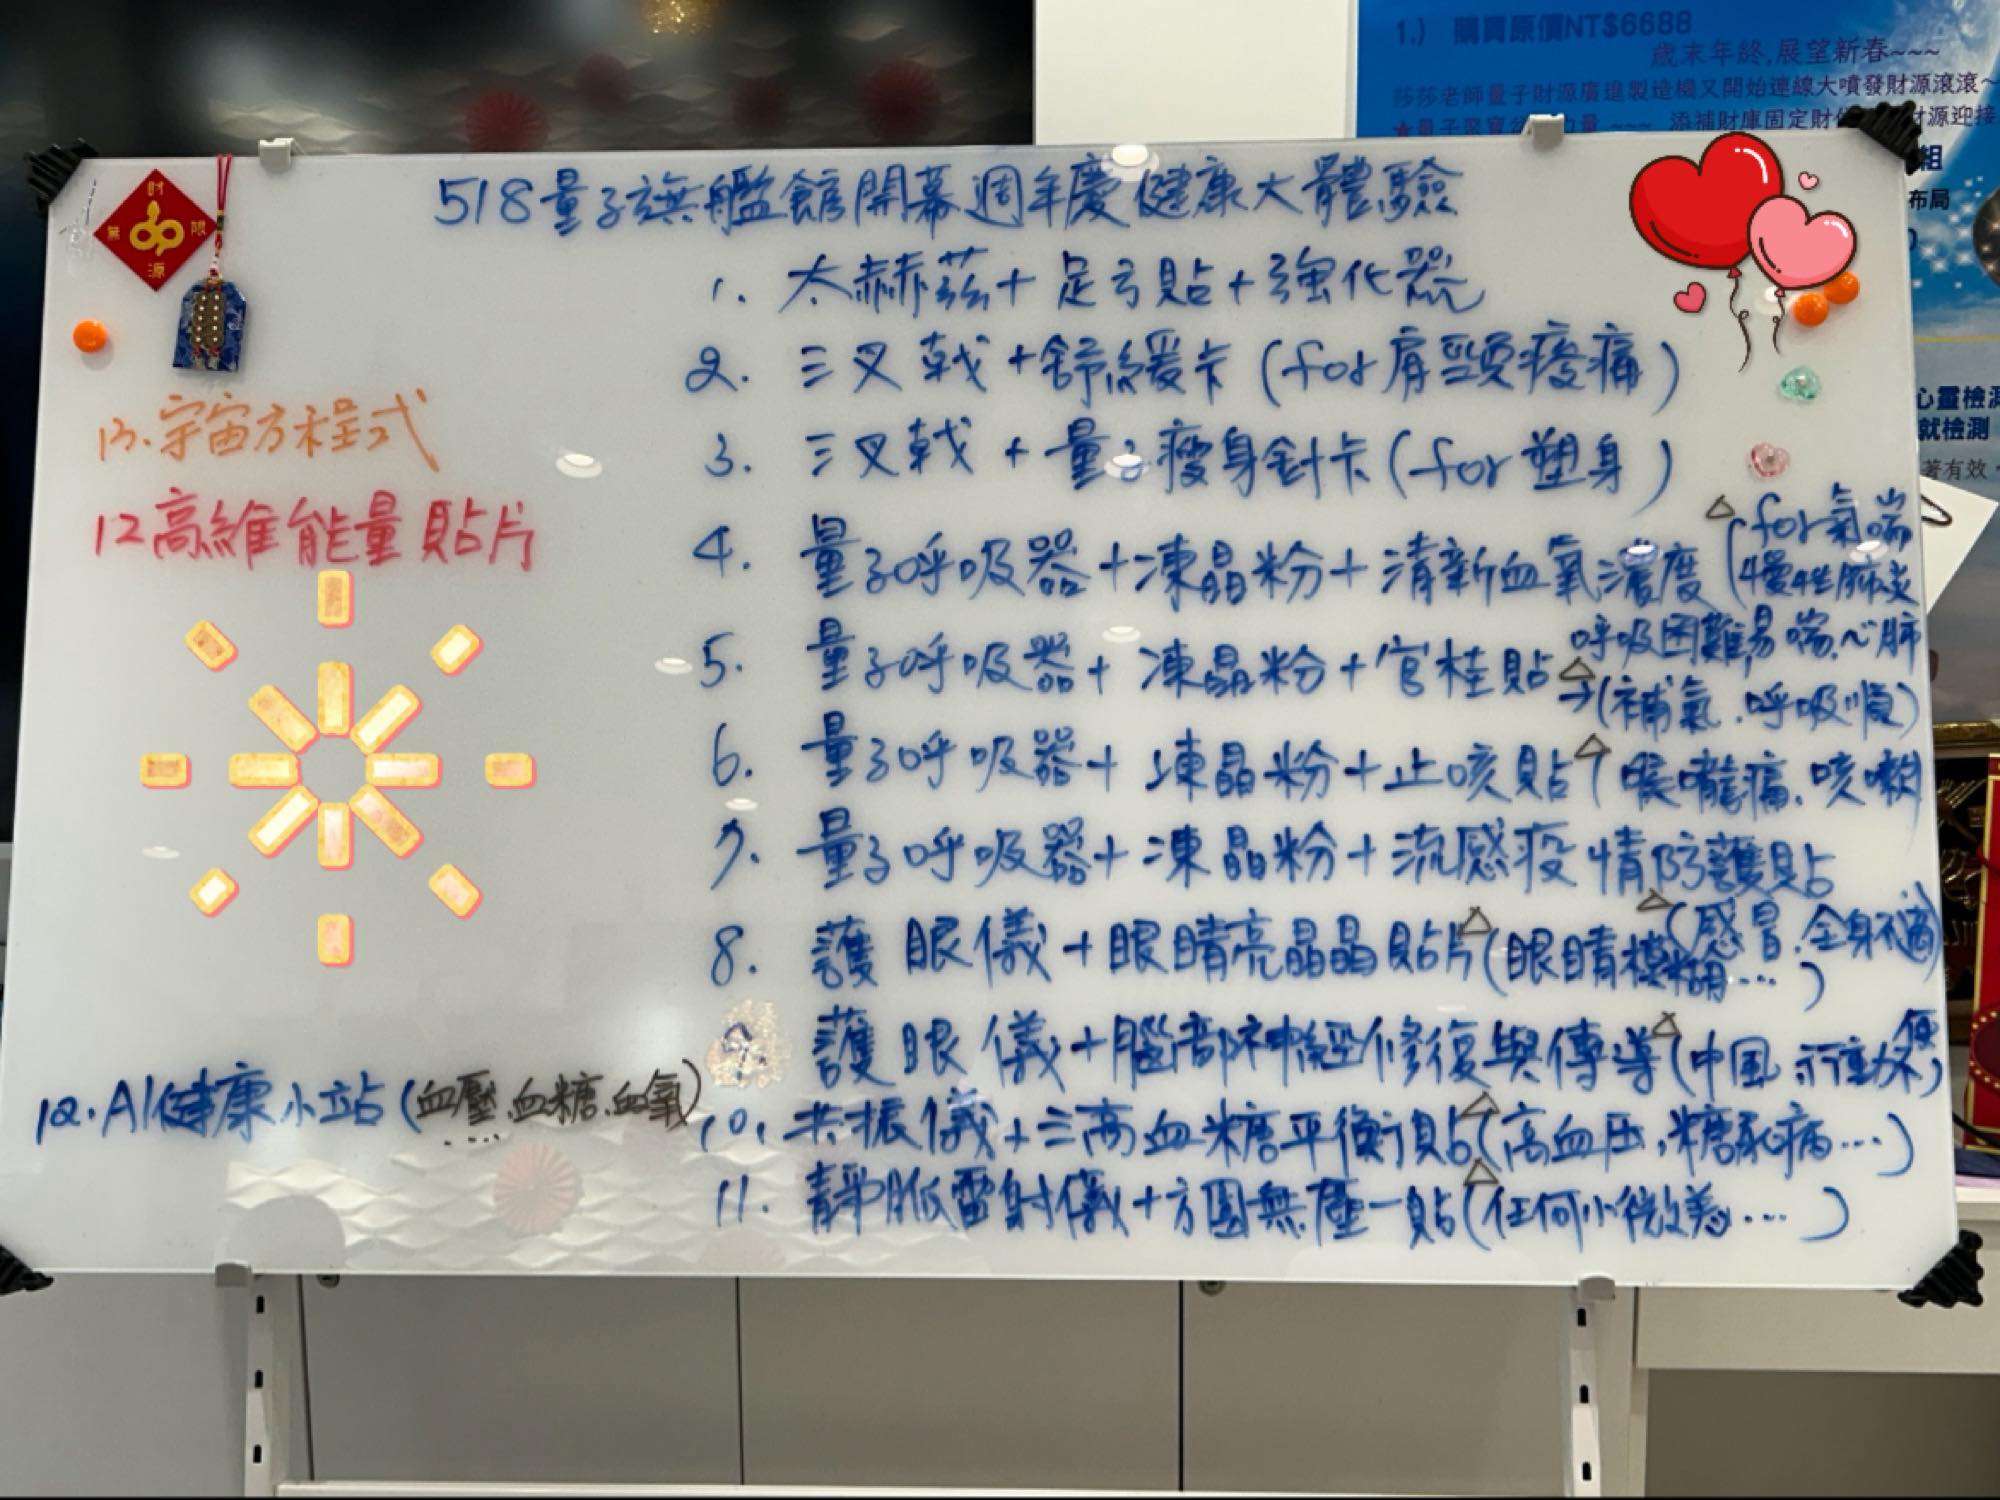 1.) 購買原價NT$6688
歲末年終,展望新春~~~
莎莎老師量子財源廣進製造機又開始連線大噴發財源滾滾~
添補財庫固定財
財源迎接
組
布局
心靈檢測
就檢測
著有效
財
無 限
源
518量子旗艦館開幕週年慶健康大體驗
1. 太赫茲+足弓貼+強化器
2. 三叉戟+舒緩卡(for肩頸痠痛)
3. 三叉戟+量子瘦身針卡(for塑身)
4. 量子呼吸器+凍晶粉+清新血氧濃度(for氣喘
慢性肺炎
呼吸困難,易喘、心肺
5. 量子呼吸器+凍晶粉+官桂貼
→(補氣、呼吸順)
6. 量子呼吸器+凍晶粉+止咳貼(喉嚨痛、咳嗽
7. 量子呼吸器+凍晶粉+流感疫情防護貼
(感冒、全身不適)
8. 護眼儀+眼睛亮晶晶貼片(眼睛模糊...)
護眼儀+腦部神經修復與傳導(中風、行動不便)
10. 共振儀+三高血糖平衡貼(高血压,糖尿病...)
11. 靜脈雷射儀+方圓無壓一貼(任何小微恙....)
13.宇宙方程式
12高維能量貼片
12.AI健康小站(血壓、血糖、血氧)
....